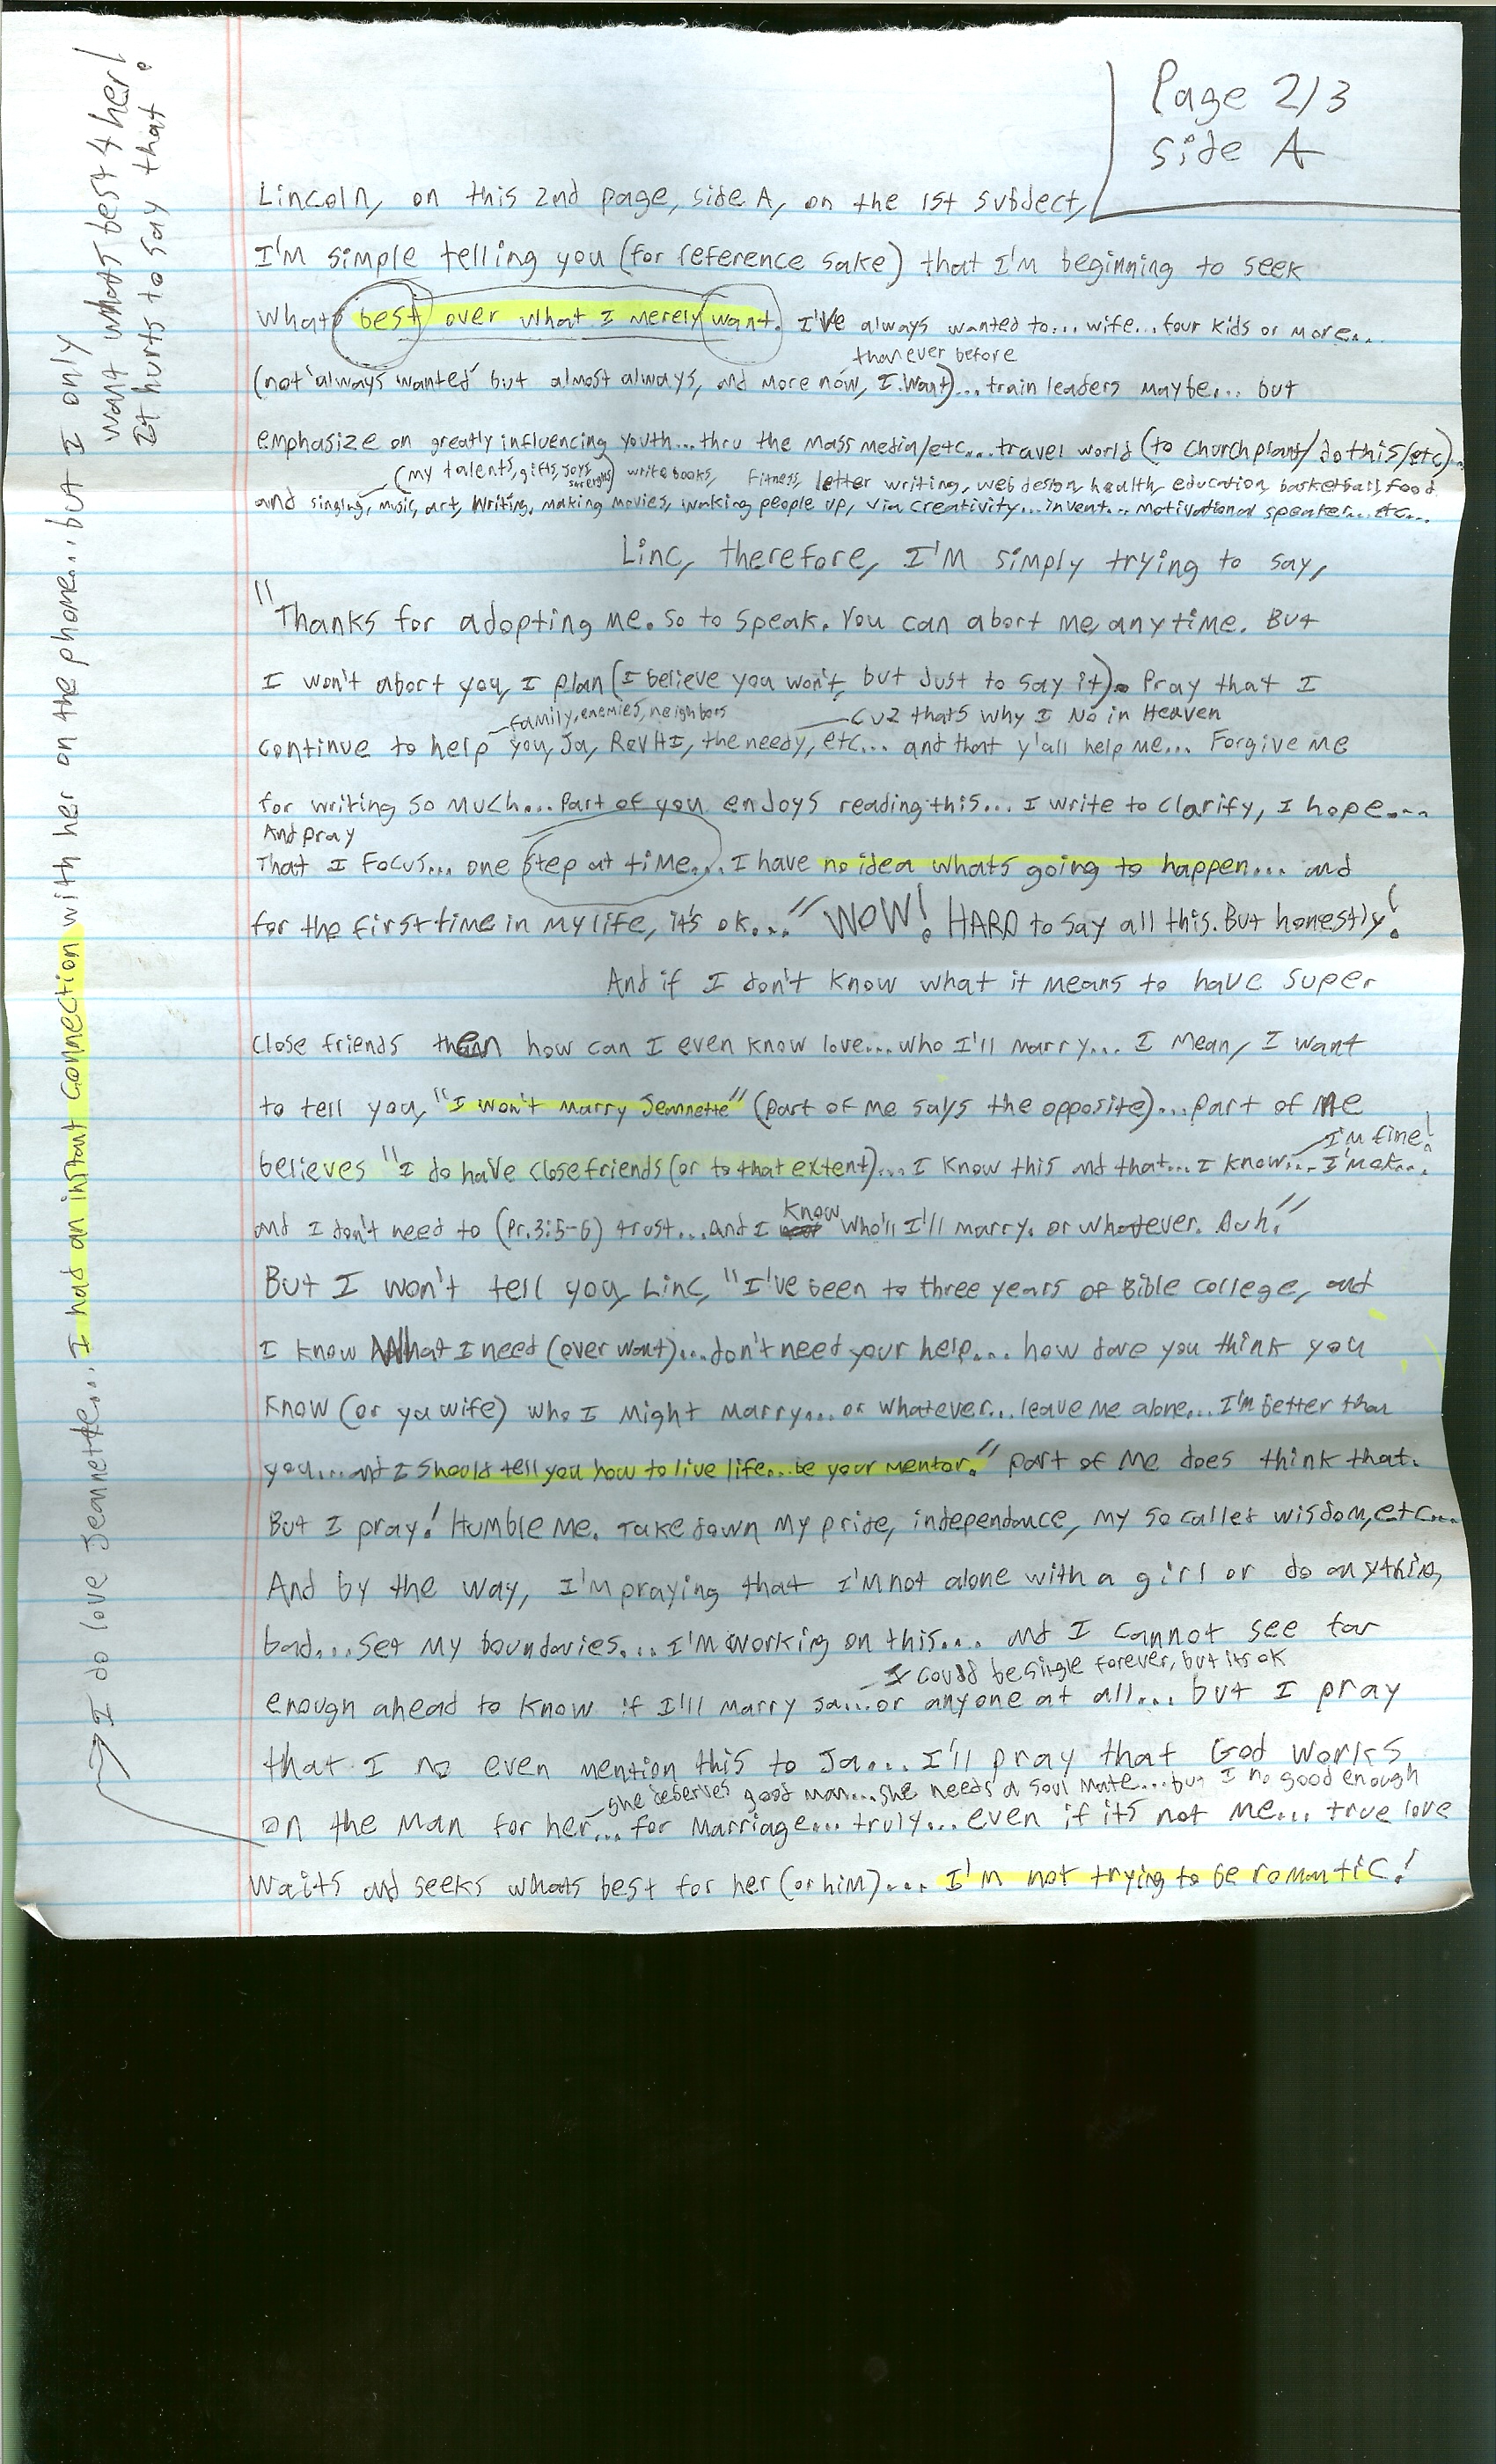 Page 2/3
side A
Lincoln, on this 2nd page, side A, on the 1st subject,
I'm simple telling you (for reference sake) that I'm beginning to seek
whats best over what I merely want. I've always wanted to... wife... four kids or more...
than ever before
(not "always wanted" but almost always, and more now, I want)... train leaders maybe... but
emphasize on greatly influencing youth... thru the mass media/etc... travel world (to church plant/do this/etc)...
(my talents, gifts, joys write books, fitness, letter writing, web design, health, education, basketball, food
and singing, music, art, writing, making movies, waking people up, via creativity... invent... motivational speaker... etc...
Linc, therefore, I'm simply trying to say,
"Thanks for adopting me. so to speak. You can abort me anytime. But
I won't abort you, I plan (I believe you won't, but just to say it). Pray that I
family, enemies, neighbors cuz thats why I No in Heaven
continue to help you, Ja, RevHI, the needy, etc... and that y'all help me... Forgive me
for writing so much... part of you enjoys reading this... I write to clarify, I hope...
And pray
That I focus... one step at time... I have no idea whats going to happen... and
for the first time in my life, it's ok..." WOW! HARD to say all this. But honestly!
And if I don't know what it means to have super
close friends then how can I even know love... who I'll marry... I mean, I want
to tell you, "I won't marry Jeannette" (part of me says the opposite)... part of me
I'm fine!
believes "I do have close friends (or to that extent)... I know this and that... I know...
and I don't need to (Pr. 3:5-6) trust... and I know who'll I'll marry. or whatever. Duh!"
But I won't tell you, Linc, "I've been to three years of Bible college, and
I know What I need (over want)... don't need your help... how dare you think you
know (or ya wife) who I might marry... or whatever... leave me alone... I'm better than
you... and I should tell you how to live life... be your mentor." part of me does think that.
But I pray! Humble me. Take down my pride, independance, my so called wisdom, etc...
And by the way, I'm praying that I'm not alone with a girl or do anything
bad... set my boundaries... I'm working on this... and I cannot see far
I could be single forever, but its ok
enough ahead to know if I'll marry Ja... or anyone at all... but I pray
that I no even mention this to Ja... I'll pray that God works
she deserves good man... she needs a soul mate... but I no good enough
on the man for her... for marriage... truly... even if its not me... true love
waits and seeks whats best for her (or him)... I'm not trying to be romantic!
I do love Jeannette... I had an instant connection with her on the phone... but I only
want what best 4 her!
It hurts to say that